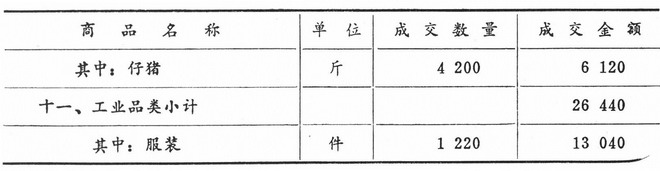 商品名称 单位 成交数量 成交金额
其中：仔猪 斤 4 200 6 120
十一、工业品类小计 26 440
其中：服装 件 1 220 13 040